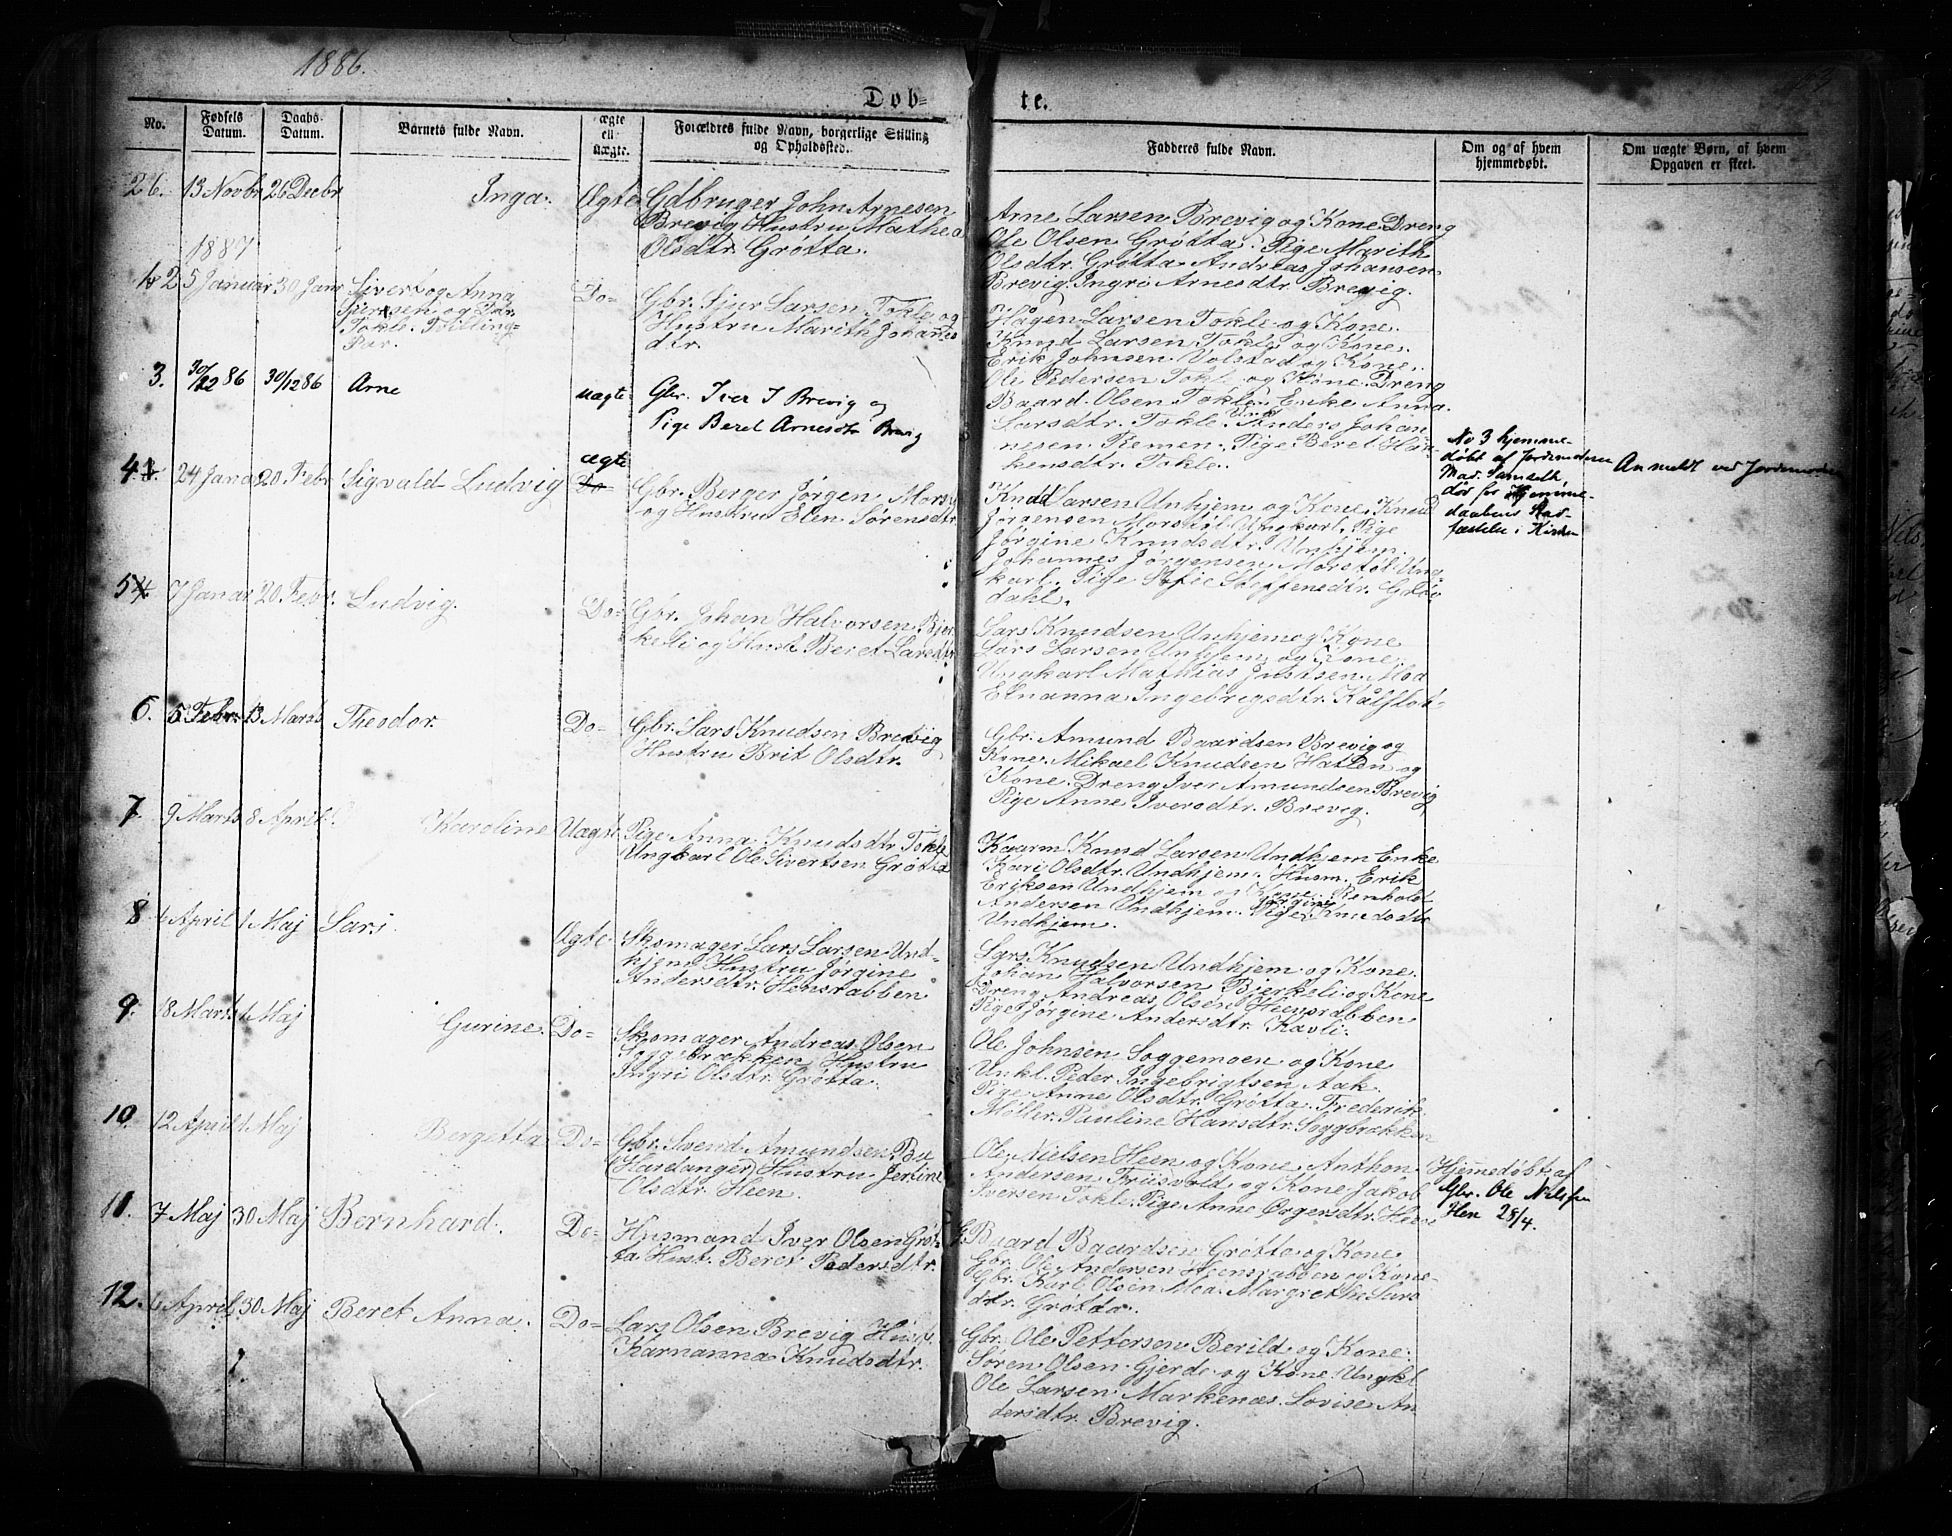 1886.
153
Døb-
te.
No.
Fødsels Datum.
Daabs-Datum.
Barnets fulde Navn.
ægte ell. uægte.
Forældres fulde Navn, borgerlige Stilling og Opholdssted.
Fadderes fulde Navn.
Om og af hvem hjemmedøbt.
Om uægte Børn, af hvem Opgaven er skeet.
26. 13 Novbr 26 Decbr Inga. Ægte Gdbruger John Arnesen
Brevig Hustru Mathea
Olsdtr. Grøtta.
Arne Larsen Brevig og Kone. Dreng
Ole Olsen Grøtta. Pige Marith
Olsdtr. Grøtta. Andreas Johansen
Brevig. Ingri Arnesdtr. Brevig.
1887
1 2 5 Januar 30 Janr Sivert og Anna
Tokle. Tvilling-
Par.
Do- Gbr. Sjur Larsen Tokle og
Hustru Marith Johans
dtr.
Hågen Larsen Tokle og Kone.
Knud Larsen Tokle og Kone.
Erik Johnsen Volstad og Kone.
Ole Pedersen Tokle og Kone. Dreng
Baard Olsen Tokle. Enke Anna
Larsdtr. Tokle. Ungk Anders Johan
nesen Remen. Pige Beret Haa
kensdtr. Tokle.
3. 30/12 86 30/12 86 Arne uægte Gbr. Iver I Brevig og
Pige Beret Arnesdtr Brevig
No 3 hjemme-
døbt af Jordemoderen
Mad. Samseth,
dør før Hjemme-
daabens Stad-
fæstelse i Kirken
Anmeldt ved Jordemoder
4. 24 Janr 20 Febr. Sigvald Ludvig ægte Do- Gbr. Berger Jørgen. Mors
og Hustru Elen Sørensdtr.
Knud Larsen Unhjem og Kone. Knud
Jørgensen Morstøl Ungkarl. Pige
Jørgine Knudsdtr. Unhjem.
Johannes Jørgensen Morstøl Ung-
karl. Pige Sofie Steffensdtr. Grøv
dahl.
5 7 Janar 20 Febr. Ludvig. Do- Gbr. Johan Halvorsen Bjer
keli og Hust. Beret Larsdtr.
Lars Knudsen Unhjem og Kone
Lars Larsen Unhjem og Kone.
Ungkarl Mathias Justsen. Moa
Elnanna Ingebrigsdtr. Kålflot.
6. 5 Febr. 13 Marts Theodor. Do- Gbr. Lars Knudsen Brevig
Hustru Brit Olsdtr.
Gbr. Amund Baardsen Brevig og
Kone. Mikael Knudsen Hatlen og
Kone. Dreng Iver Amundsen Brevig
Pige Anne Iversdtr. Brevig.
7 9 Marts 8 April Karoline Uægte Pige Anna Knudsdtr Tokle
Ungkarl Ole Sivertsen Grøtta
Kaarm Knud Larsen Undhjem Enke
Kari Olsdtr. Undhjem. Husm. Erik
Eriksen Undhjem og Kone. Renholdt
Andersen Undhjem. Pige Jørgine Knudsdtr
Undhjem.
8 4 April 1 Maj Lars Ægte. Skomager Lars Larsen Und-
hjem Hustru Jørgine
Andersdtr. Hensrabben
Lars Knudsen Undhjem og Kone.
Johan Halvorsen Bjerkeli og Kone
Dreng Andreas Olsen Heensrabben
Pige Jørgine Andersdtr. Kavli.
9. 18 Marts 1 Maj Gurine. Do- Skomager Andreas Olsen
Soggebrækken Hustru
Ingri Olsdtr. Grøtta.
Ole Johnsen Soggemoen og Kone
Unkl. Peder Ingebrigtsen Aak.
Pige Anne Olsdtr. Grøtta. Frederik
Møller. Pauline Hansdtr. Soggbrækken
10. 12 April 1 Maj Bergetta Do- Gbr. Svend Amundsen Bu
(Hardanger) Hustru Jertine
Olsdtr. Heen.
Ole Nielsen Heen og Kone Anthon
Andersen Friisvold og Kone Jakob
Iversen Tokle. Pige Anne Ørgersdtr. Heen
Hjemmedøbt af
Gbr. Ole Nilsen
Hen 28/4.
11. 7 Maj 30 Maj Bernhard. Do- Husmand Iver Olsen Grøt-
ta Hust. Beret Pedersdtr.
G. Baard Baardsen Grøtta og Kone
Gbr. Ole Andersen Heensrabben og Kone.
Gbr. Karl Olsen Moa. Margrethe Lars
dtr. Grøtta.
12. 4 April 30 Maj Beret Anna. Do- Lars Olsen Brevig Hust.
Karnanna Knudsdtr.
Gbr. Ole Pettersen Berild og Kone.
Søren Olsen Gjerde og Kone. Ungkl
Ole Larsen Markenæs. Lovise An
dersdtr. Brevig.